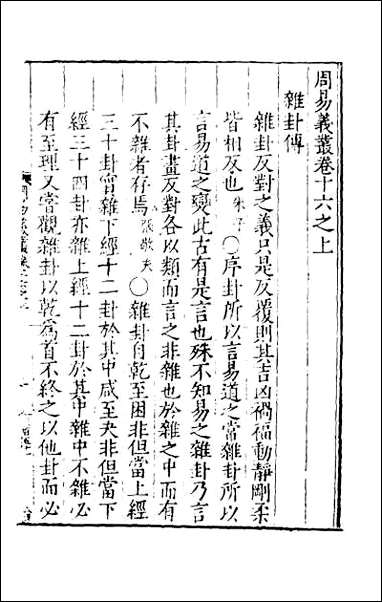 周易義叢卷十六之上
雜卦傳
雜卦反對之義只是反覆則其吉凶禍福動靜剛柔
皆相反也朱子〇序卦所以言易道之常雜卦所以
言易道之變此古有是言也殊不知易之雜卦乃言
其卦畫反對各以類而言之非雜也於雜之中而有
不雜者存焉張敬夫〇雜卦自乾至困非但當上經
三十卦實雜下經十二卦於其中咸至夬非但當下
經三十四卦亦雜上經十二卦於其中雜中不雜必
有至理又當觀雜卦以乾為首不終之以他卦而必